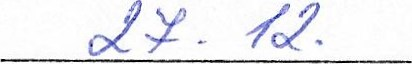 27. 12.